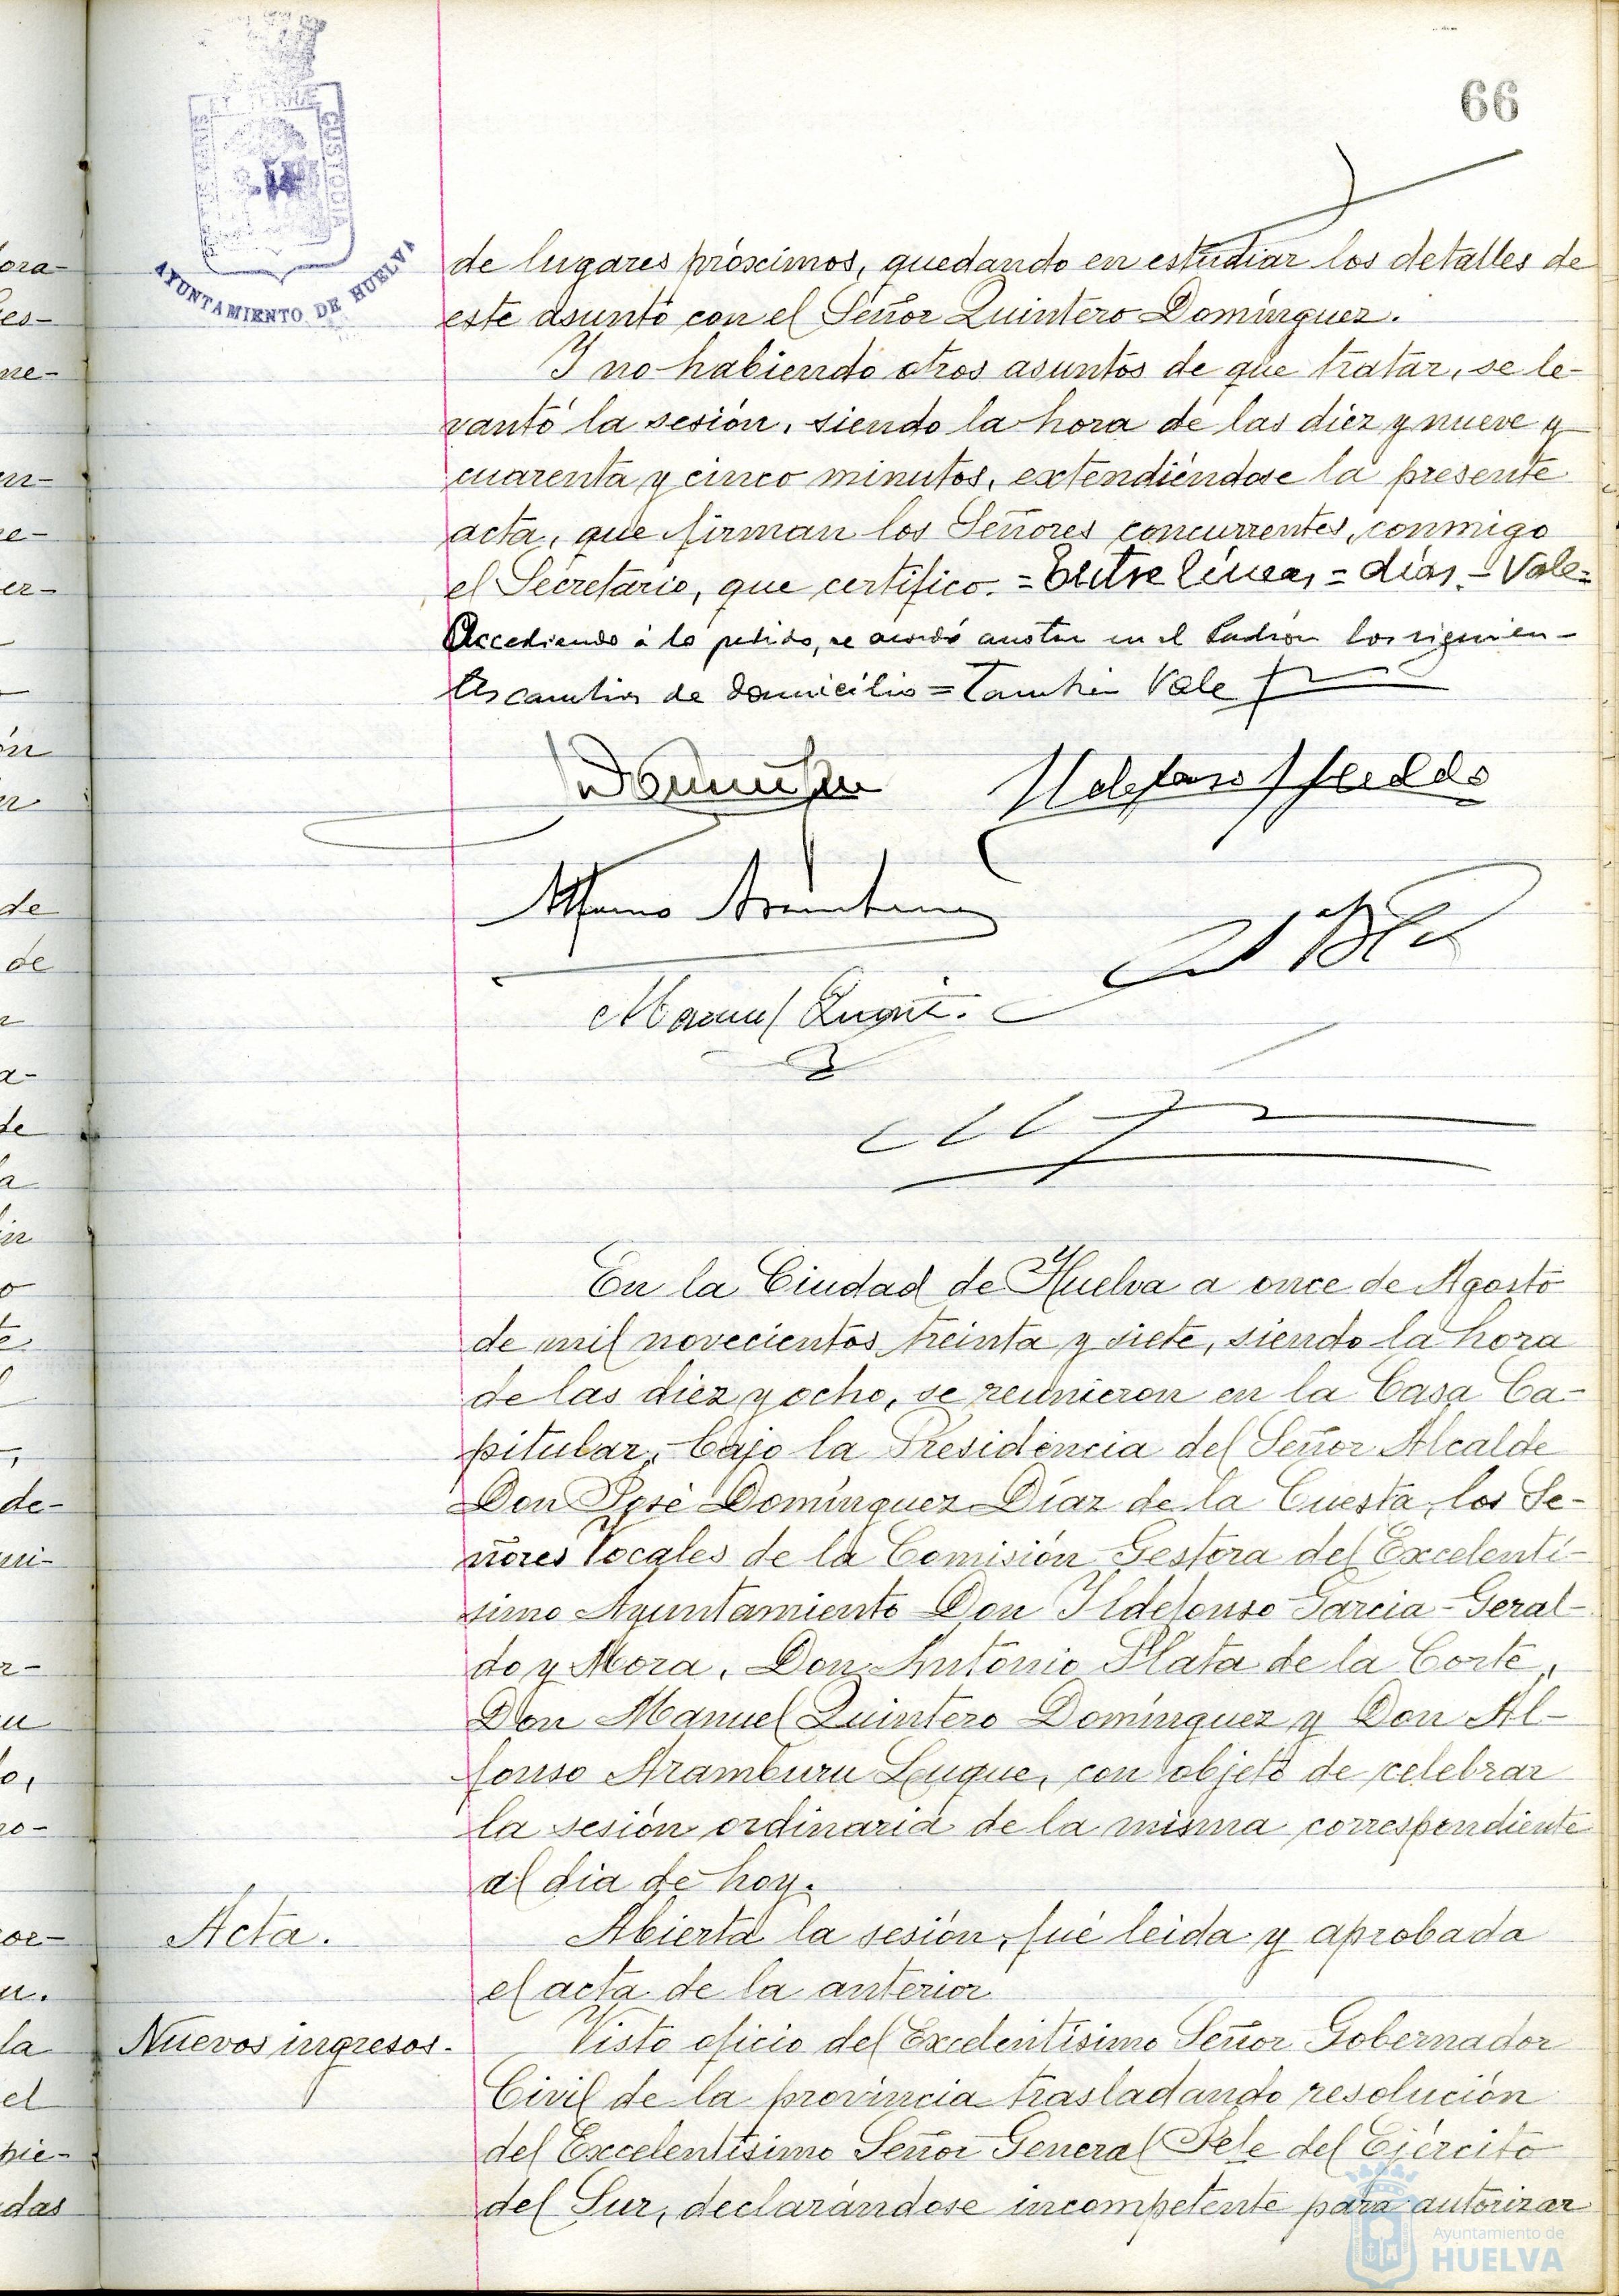 66
PORTUS MARIS ET TERRAE CUSTODIA
AYUNTAMIENTO DE HUELVA
de lugares próximos, quedando en estudiar los detalles de
este asunto con el Señor Quintero Domínguez.
Y no habiendo otros asuntos de que tratar, se le-
vantó la sesión, siendo la hora de las diez y nueve y
cuarenta y cinco minutos, extendiéndose la presente
acta, que firman los Señores concurrentes, conmigo
el Secretario, que certifico. = Entre líneas = días. = Vale =
Accediendo á lo pedido, se acordó anotar en el Padrón los siguien-
tes cambios de domicilio = También Vale
Manuel Quint.
En la Ciudad de Huelva a once de Agosto
de mil novecientos treinta y siete, siendo la hora
de las diez y ocho, se reunieron en la Casa Ca-
pitular, bajo la Presidencia del Señor Alcalde
Don José Domínguez Díaz de la Cuesta, los Se-
ñores Vocales de la Comisión Gestora del Excelentí-
simo Ayuntamiento Don Ildefonso Garcia-Geral-
do y Mora, Don Antonio Plata de la Corte,
Don Manuel Quintero Domínguez y Don Al-
fonso Aramburu Luque, con objeto de celebrar
la sesión ordinaria de la misma correspondiente
al dia de hoy.
Acta.
Abierta la sesión, fué leida y aprobada
el acta de la anterior
Nuevos ingresos.
Visto oficio del Excelentísimo Señor Gobernador
Civil de la provincia trasladando resolución
del Excelentísimo Señor General Jefe del Ejército
del Sur, declarándose incompetente para autorizar
Ayuntamiento de
HUELVA